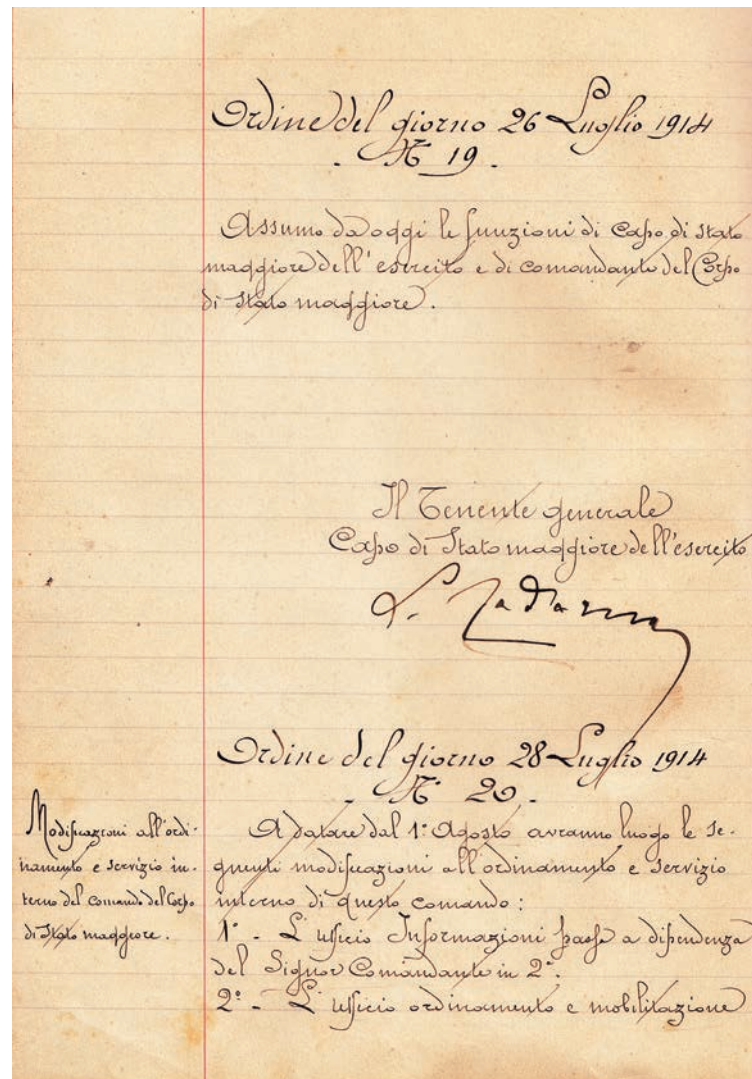 Ordine del giorno 26 Luglio 1914
- N° 19 -
Assumo da oggi le funzioni di Capo di stato
maggiore dell'esercito e di comandante del Corpo
di Stato maggiore.
Il Tenente generale
Capo di Stato maggiore dell'esercito
L. Cadorna
Ordine del giorno 28 Luglio 1914
- N° 20 -
Modificazioni all'ordi-
namento e servizio in-
terno del comando del Corpo
di Stato maggiore.
A datare dal 1° Agosto avranno luogo le se-
guenti modificazioni all'ordinamento e servizio
interno di questo comando:
1° - L'ufficio Informazioni passa a dipendenza
del Signor Comandante in 2ª.
2° - L'ufficio ordinamento e mobilitazione